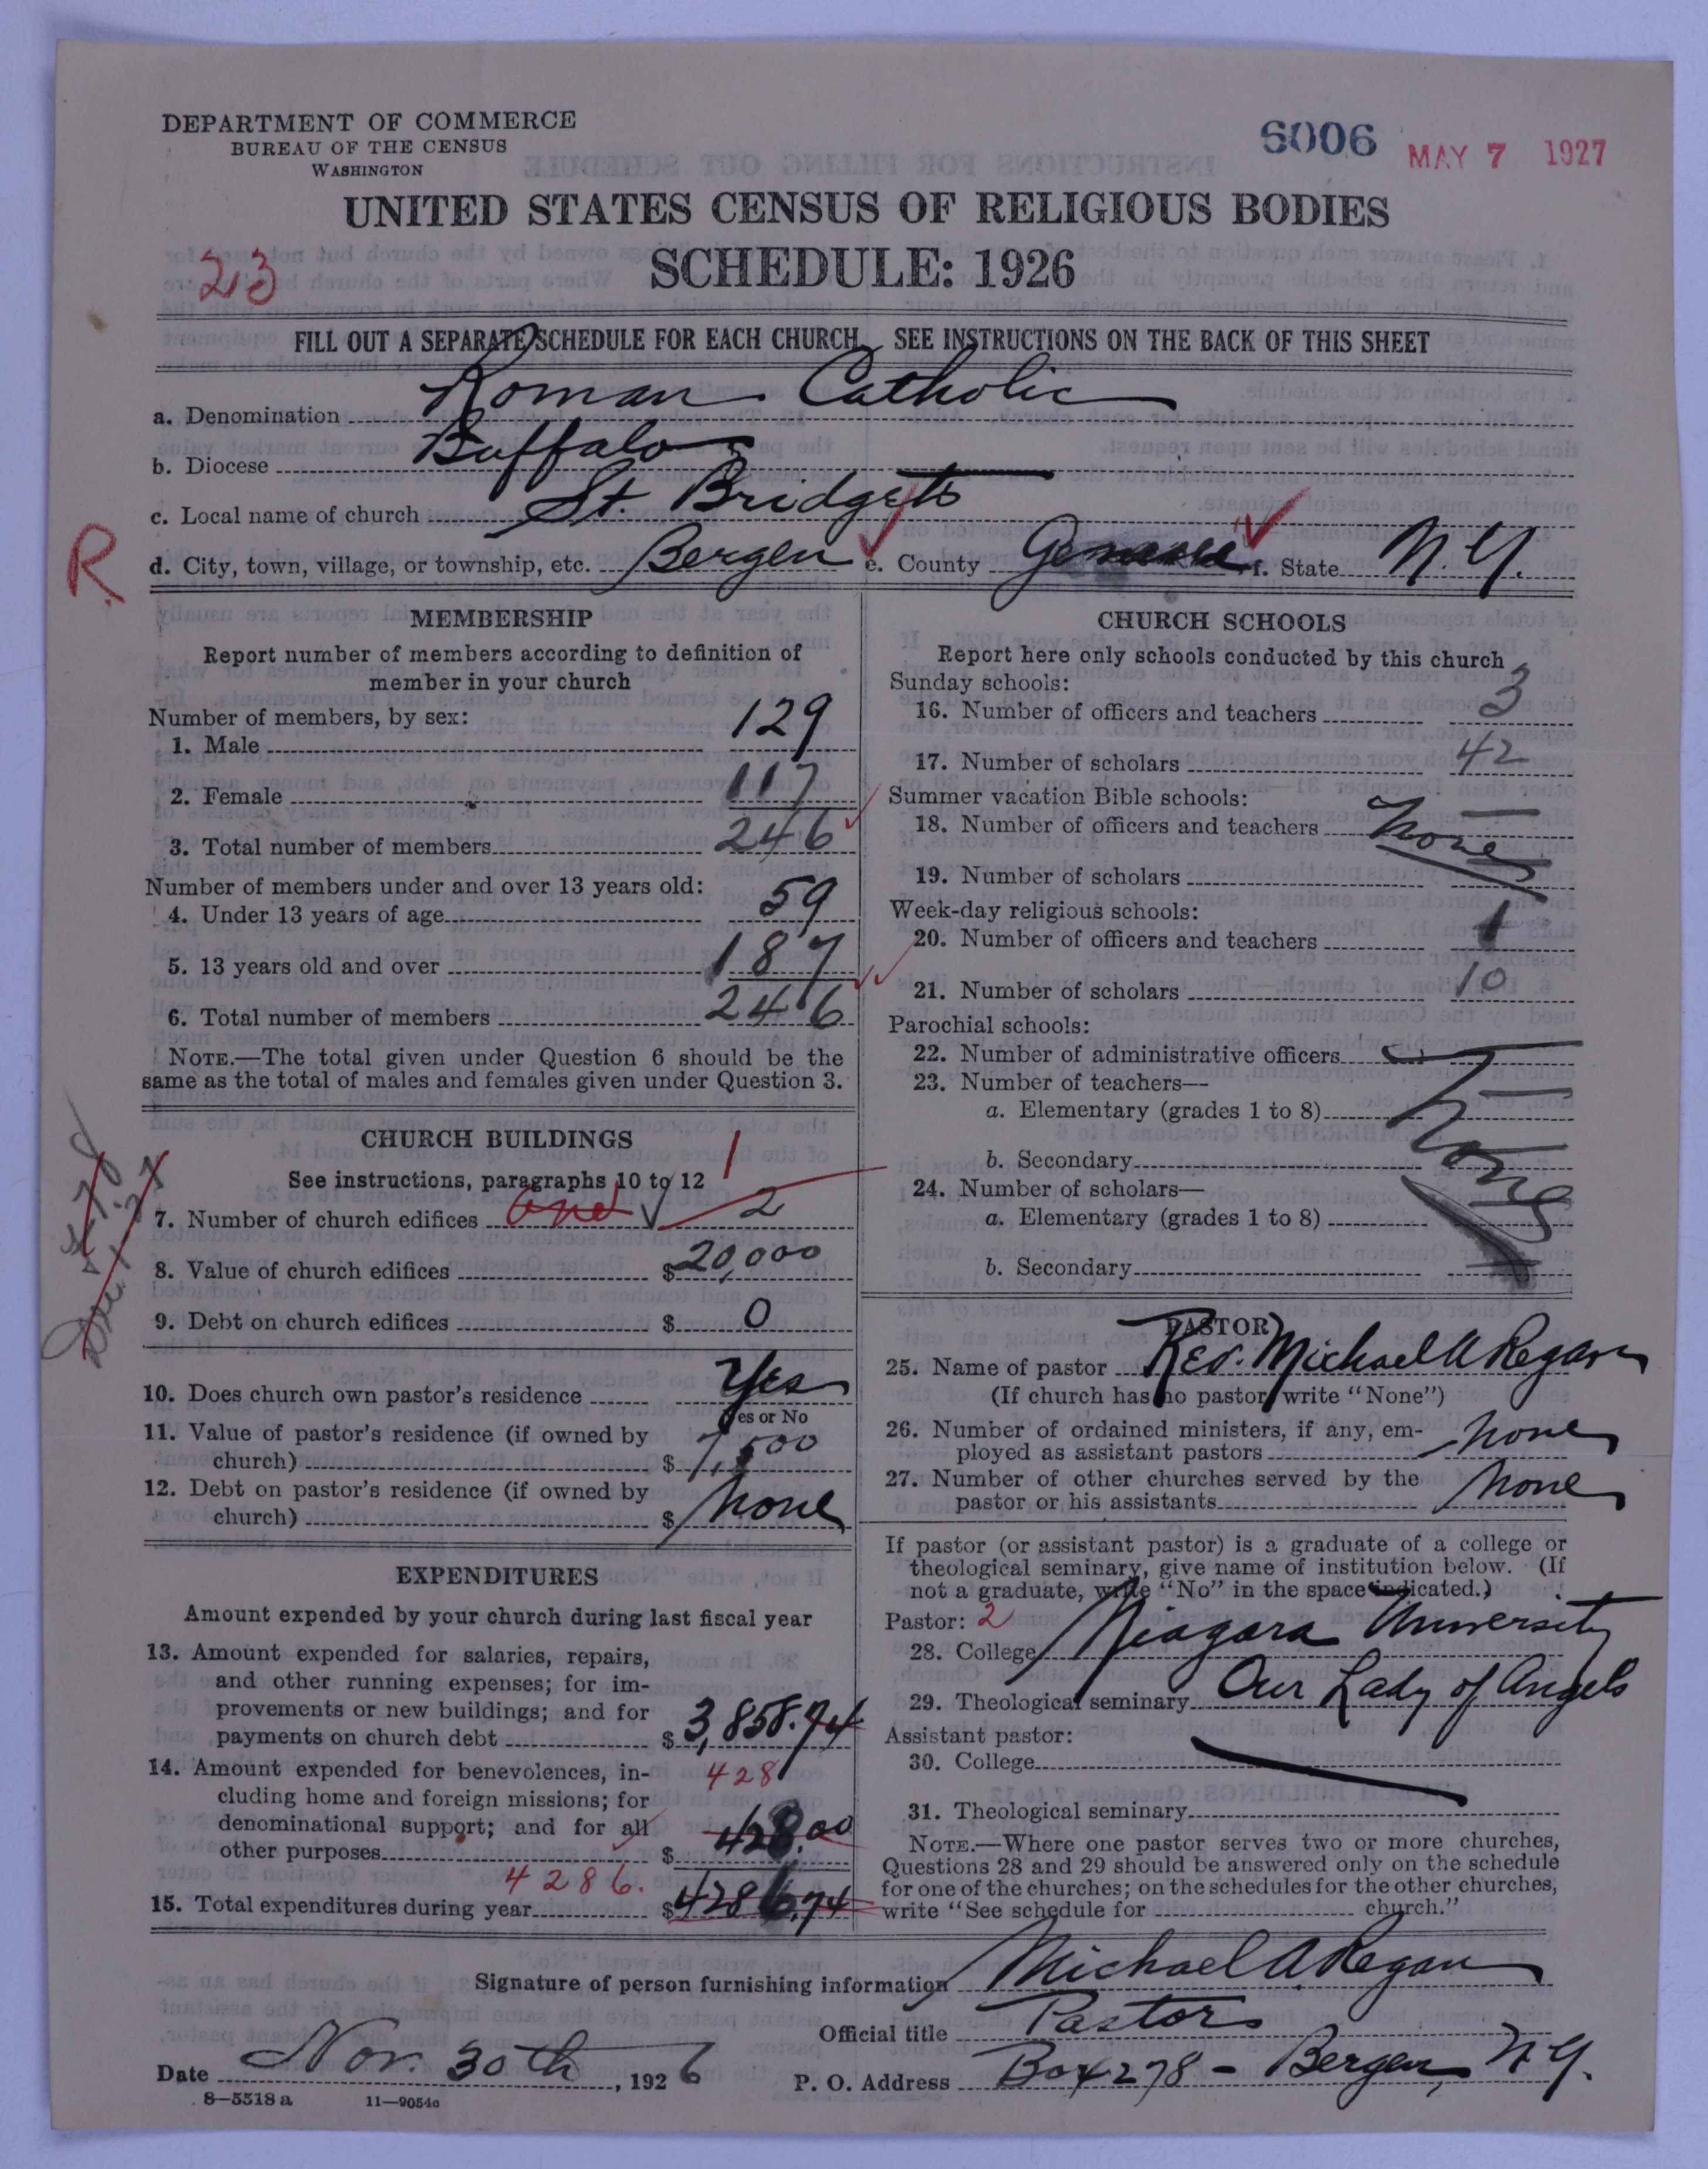 DEPARTMENT OF COMMERCE
BUREAU OF THE CENSUS
WASHINGTON
6006 MAY 7 1927
UNITED STATES CENSUS OF RELIGIOUS BODIES
SCHEDULE: 1926
213
FILL OUT A SEPARATE SCHEDULE FOR EACH CHURCH. SEE INSTRUCTIONS ON THE BACK OF THIS SHEET
a. Denomination Roman Catholic
b. Diocese Buffalo
c. Local name of church St. Bridgets
R
d. City, town, village, or township, etc. Bergen e. County Genesee f. State N.Y.
MEMBERSHIP
Report number of members according to definition of
member in your church
Number of members, by sex:
1. Male 129
2. Female 117
3. Total number of members 246
Number of members under and over 13 years old:
4. Under 13 years of age 59
5. 13 years old and over 187
6. Total number of members 246
NOTE.—The total given under Question 6 should be the
same as the total of males and females given under Question 3.
CHURCH BUILDINGS
See instructions, paragraphs 10 to 12 1
7. Number of church edifices one 2
8. Value of church edifices $ 20,000
9. Debt on church edifices $ 0
10. Does church own pastor's residence Yes
Yes or No
11. Value of pastor's residence (if owned by
church) $ 7,500
12. Debt on pastor's residence (if owned by
church) $ None
EXPENDITURES
Amount expended by your church during last fiscal year
13. Amount expended for salaries, repairs,
and other running expenses; for im-
provements or new buildings; and for
payments on church debt $ 3,858.74
14. Amount expended for benevolences, in-
cluding home and foreign missions; for
denominational support; and for all
other purposes $ 428.00
428
4286.
15. Total expenditures during year $ 4286.74
CHURCH SCHOOLS
Report here only schools conducted by this church
Sunday schools:
16. Number of officers and teachers 3
17. Number of scholars 42
Summer vacation Bible schools:
18. Number of officers and teachers None
19. Number of scholars
Week-day religious schools:
20. Number of officers and teachers 1
21. Number of scholars 10
Parochial schools:
22. Number of administrative officers
23. Number of teachers—
a. Elementary (grades 1 to 8) None
b. Secondary
24. Number of scholars—
a. Elementary (grades 1 to 8)
b. Secondary
PASTOR
25. Name of pastor Rev. Michael A Regan
(If church has no pastor write "None")
26. Number of ordained ministers, if any, em-
ployed as assistant pastors None
27. Number of other churches served by the
pastor or his assistants None
If pastor (or assistant pastor) is a graduate of a college or
theological seminary, give name of institution below. (If
not a graduate, write "No" in the space indicated.)
Pastor: 2
28. College Niagara University
29. Theological seminary Our Lady of Angels
Assistant pastor:
30. College
31. Theological seminary
NOTE.—Where one pastor serves two or more churches,
Questions 28 and 29 should be answered only on the schedule
for one of the churches; on the schedules for the other churches,
write "See schedule for church."
Signature of person furnishing information Michael A Regan
Official title Pastor
Date Nov. 30th, 1926 P. O. Address Box 278 - Bergen, N.Y.
8—5518 a 11—9054c